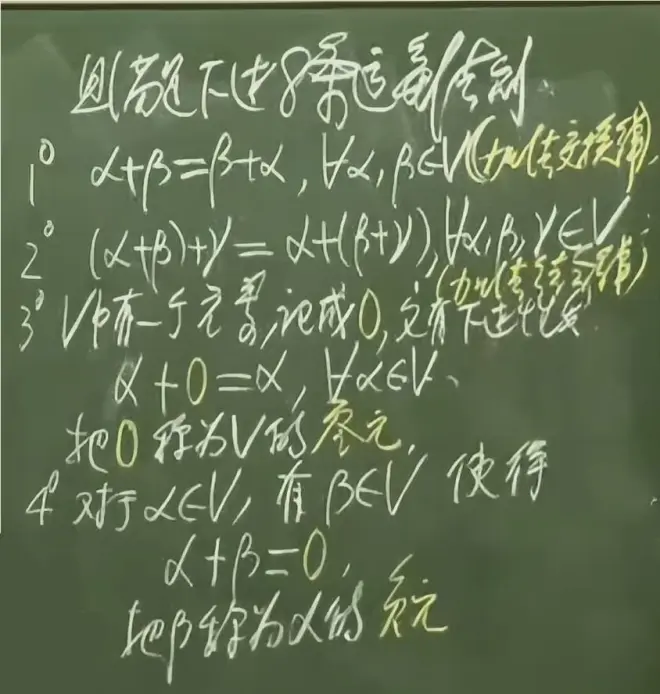 且满足下述8条运算法则
1° α+β=β+α, ∀α, β∈V(加法交换律),
2° (α+β)+γ = α+(β+γ), ∀α, β, γ∈V
(加法结合律)
3° V中有一个元素,记成0,它有下述性质:
α+0=α, ∀α∈V、
把0称为V的零元,
4° 对于α∈V, 有β∈V 使得
α+β=0,
把β称为α的负元